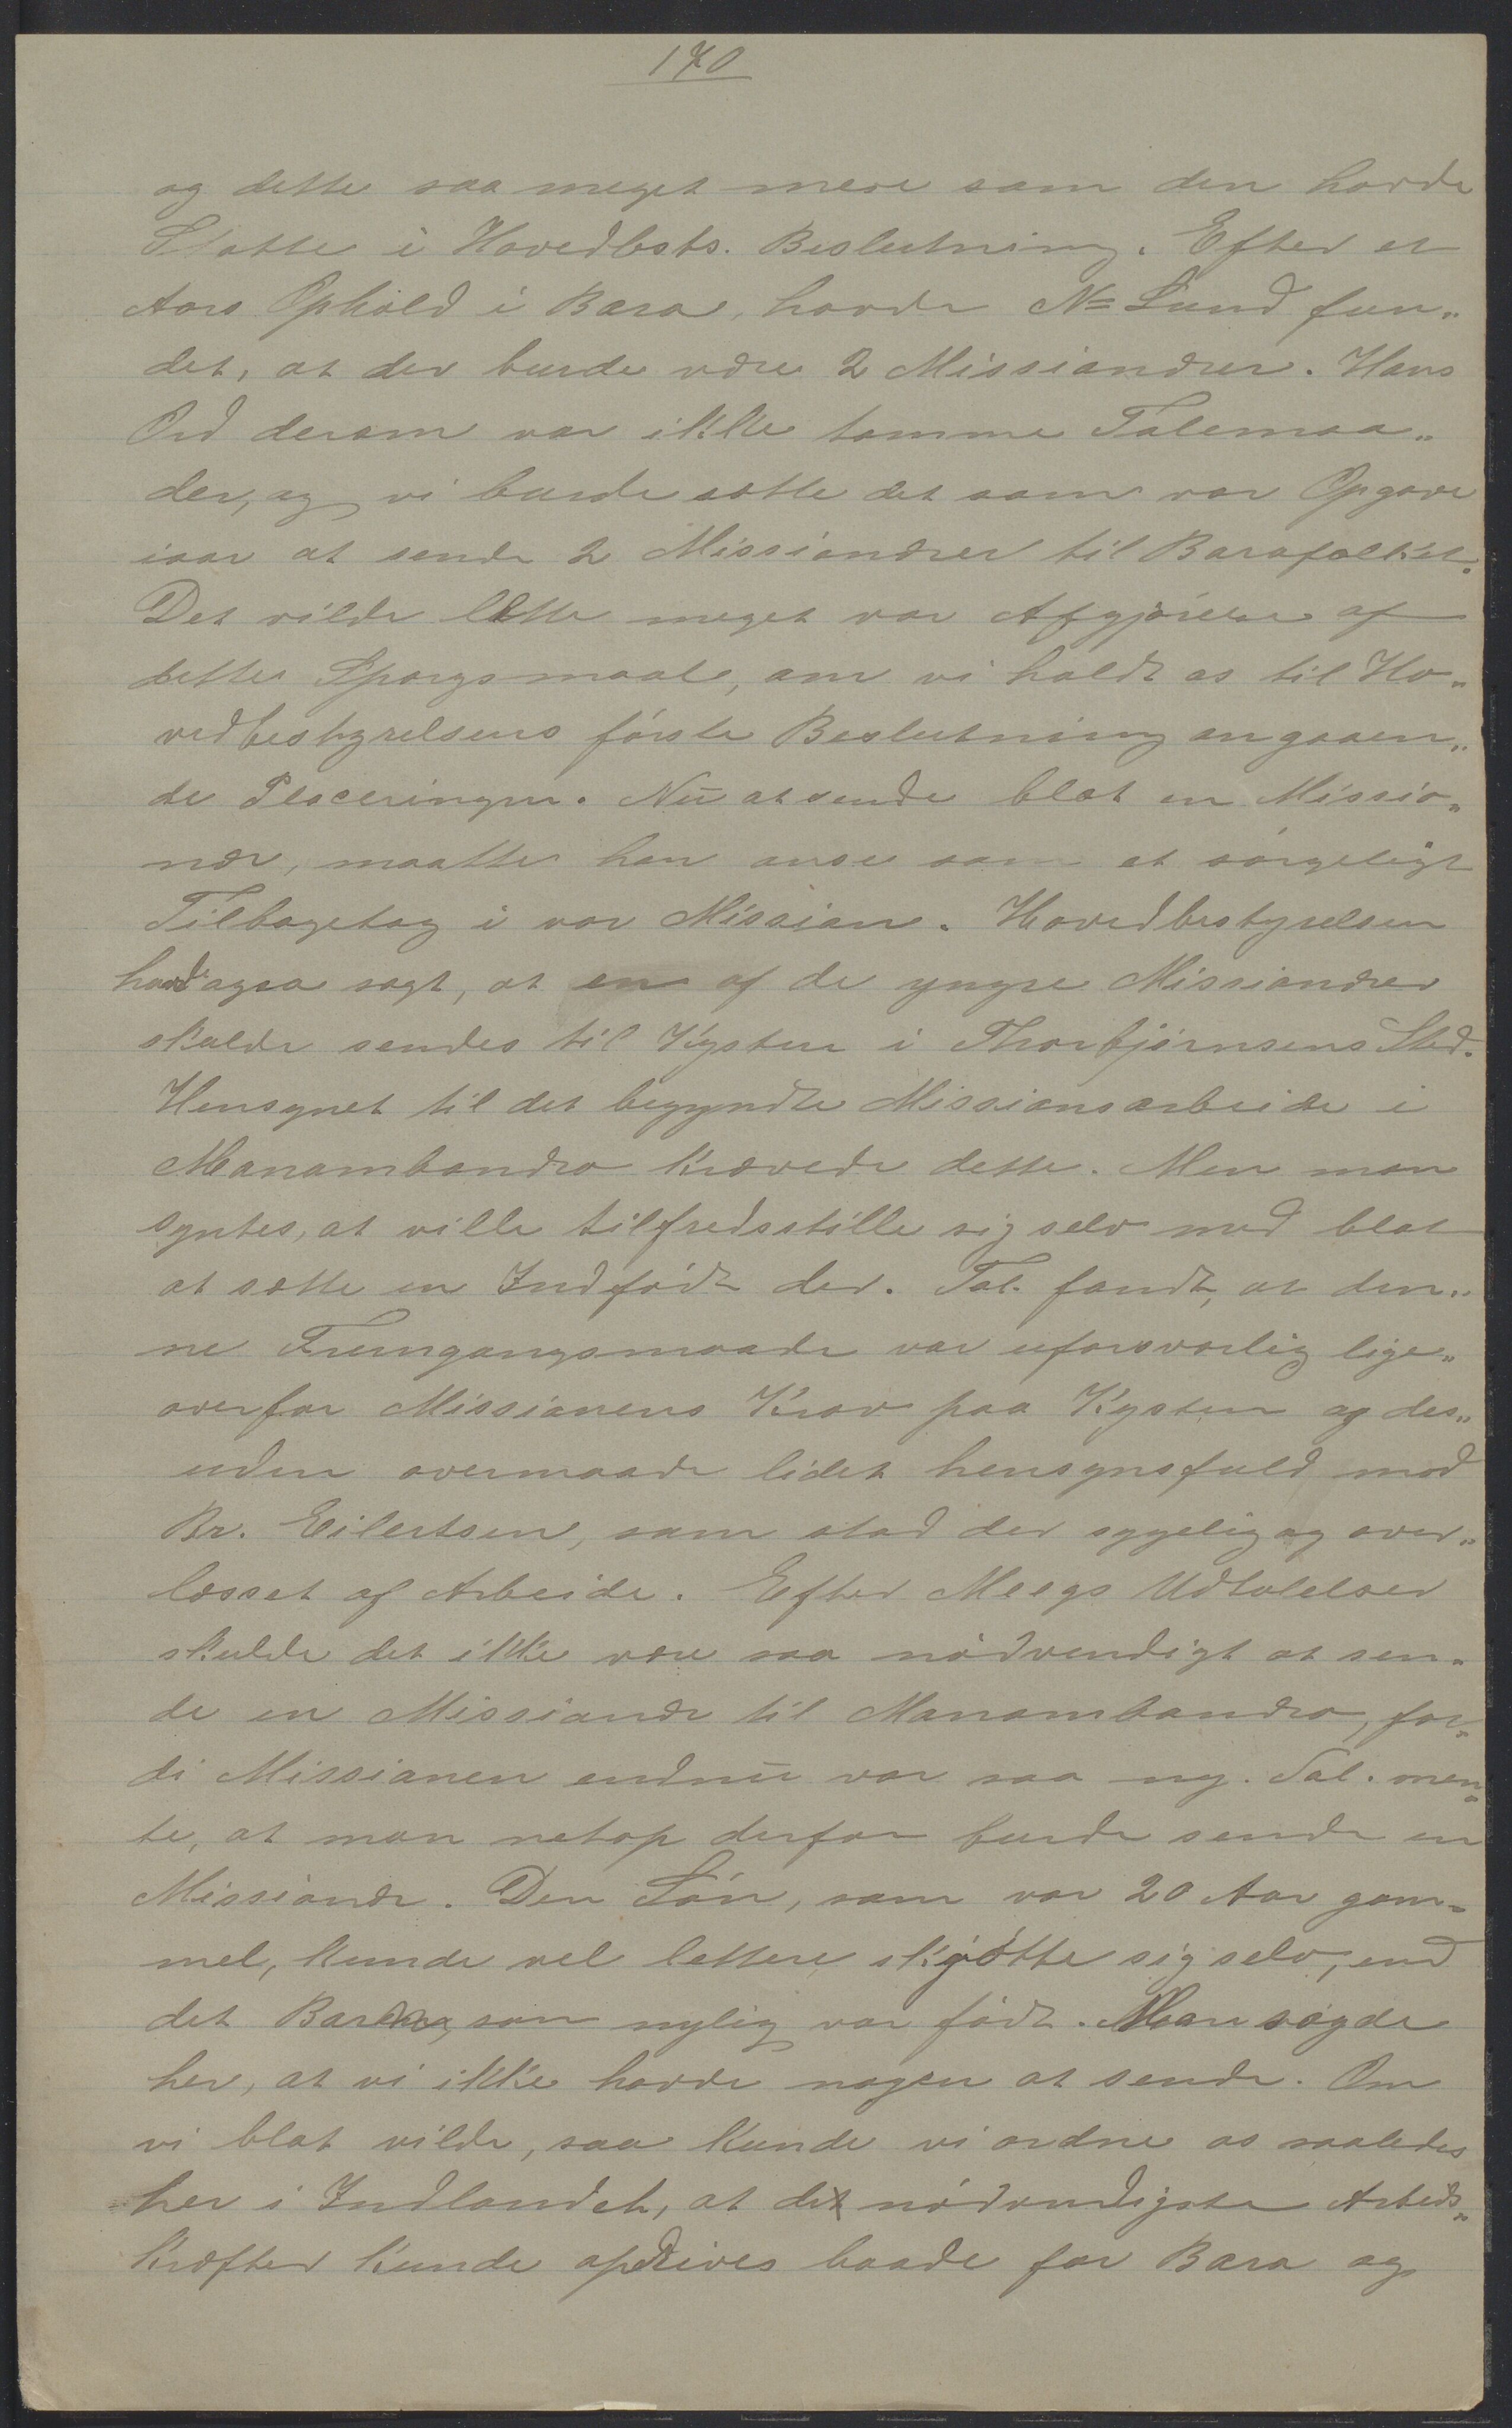 170
og dette saa meget mere som den havde
Støtte i Hovedbsts. Beslutning. Efter et
Aars Ophold i Bara, havde N= Lund fun„
det, at der burde være 2 Missionærer. Hans
Ord derom var ikke tomme Talemaa„
der, og vi burde sætte det som vor Opgave
iaar at sende 2 Missionærer til Barafolket.
Det vilde lette meget vor Afgjørelse af
dette Spørgsmaal, om vi holdt os til Ho„
vedbestyrelsens første Beslutning angaaen„
de Placeringen. Nu at sende blot en Missio„
nær, maatte han anse som et sørgeligt
Tilbagetog i vor Mission. Hovedbestyrelsen
havde ogsaa sagt, at en af de yngre Missionærer
skulde sendes til Kysten i Thorbjørnsens Sted.
Hensynet til det begyndte Missionsarbeide i
Manambondro krævede dette. Men man
syntes, at ville tilfredsstille sig selv med blot
at sætte en Indfødt der. Tal. fandt, at den„
ne Fremgangsmaade var uforsvarlig lige„
overfor Missionens Krav paa Kysten og des„
uden overmaade lidet hensynsfuld mod
Br. Eilertsen, som stod der sygelig og over„
læsset af Arbeide. Efter Meegs Udtalelser
skulde det ikke være saa nødvendigt at sen„
de en Missionær til Manambondro, for„
di Missionen endnu var saa ny. Tal. men„
te, at man netop derfor burde sende en
Missionær. Den Søn, som var 20 Aar gam„
mel, kunde vel lettere skjøtte sig selv, end
det Barn, som nylig var født. Man sagde
her, at vi ikke havde nogen at sende. Om
vi blot vilde, saa kunde vi ordne os saaledes
her i Indlandet, at det nødvendigste Arbeids„
kræfter kunde opdrives baade for Bara og